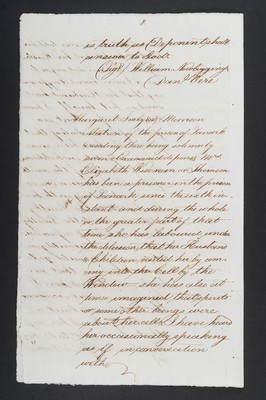 is truth as Deponent shall
answer to God.
(Sigd) William
Danl Vere
Margaret
Matron of the prison of Lanark
residing there being solemnly
sworn & examined depones Mrs
Elizabeth or Thomson
has been a prisoner in the prison
of Lanark since the
and during the whole
or the greater part of that
time she has laboured under
the delusion that her Husband
& Children visited her by com-
ing into the Cell by the
Window – she has also at
times imagined that spirits
or some other beings were
about her cell & I have heard
her occasionally speaking
as if in conversation
with